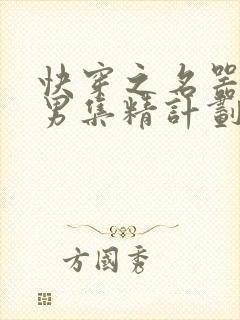 快穿之名器
男集精計劃
方國秀